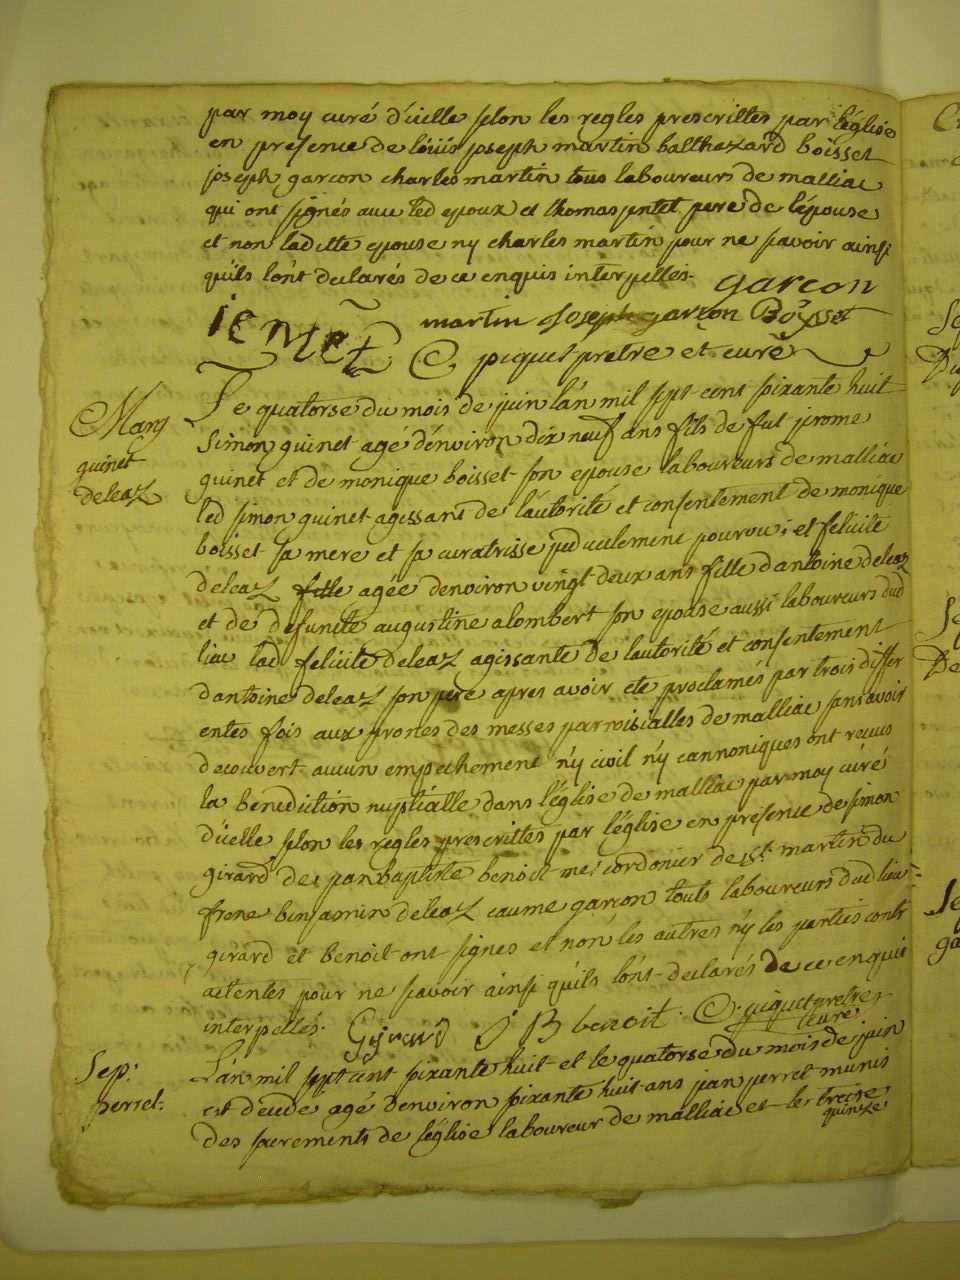 par moy curé d'icelle selon les regles prescrittes par l'église
en presence de loüis joseph martin balthazard boisset
joseph garcon charles martin tous laboureurs de malliac
qui ont signés avec led epoux et thomas pere de l'épouse
et non laditte epouse ny charles martin pour ne savoir ainsi
qu'ils lont declarés de ce enquis interpellés.
garcon
martin Joseph garçon Boisset
piquet pretre et curé
Mary
guinet
deleaz
Le quatorse du mois de juin l'an mil sept cent soixante huit
Simon guinet agé d'environ dix neuf ans fils de fut jerome
guinet et de monique boisset son epouse laboureurs de malliac
led simon guinet agissant de l'autorité et consentement de monique
boisset sa mere et sa curatrisse pourvou; et felicité
deleaz agée denviron vingt deux ans fille d'antoine deleaz
et de defunte augustine alombert son epouse aussi laboureurs dud
lieu lad felicité deleaz agissante de l'autorité et consentement
dantoine deleaz son pere apres avoir ete proclamés par trois differ
entes fois aux prones des messes parroissialles de malliac sans avoir
decouvert aucun empechement n'y civil n'y cannoniques ont recus
la benediction nuptialle dans l'église de malliac par moy curé
d'icelle selon les regles prescrittes par l'église en presence de simon
girard de jeanbaptiste benoit me: cordonier de st. martin du
frene binjamin deleaz caume garcon touts laboureurs dud lieu
girard et benoit ont signes et non les autres n'y les parties contr
actentes pour ne savoir ainsi qu'ils lont declarés de ce enquis
interpellés. Girard J B benoit. C. piquet pretre
curé
Sep:
perret.
L'an mil sept cent soixante huit et le quatorse du mois de juin
est decede agé denviron soixante huit ans jean perret munis
des sacrements de l'église laboureur de malliac et le treise
quinze